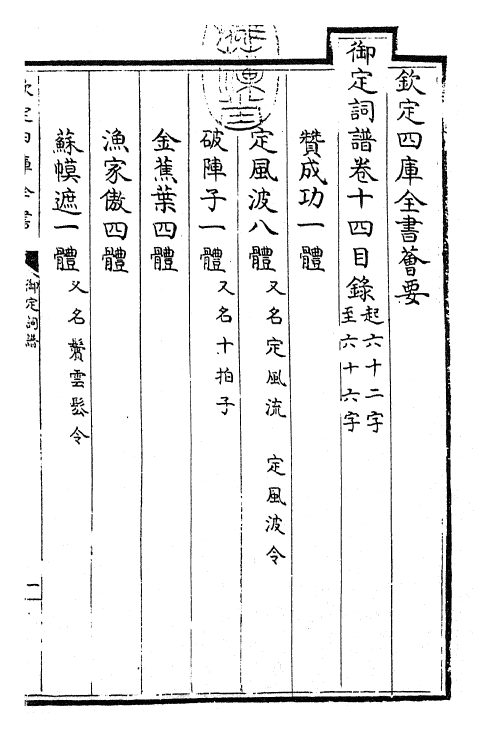 欽定四庫全書薈要
御定詞譜卷十四目錄 起六十二字 至六十六字
贊成功一體
定風波八體 又名定風流 定風波令
破陣子一體 又名十拍子
金蕉葉四體
漁家傲四體
蘇幙遮一體 又名鬢雲鬆令
欽定四庫全書
御定詞譜
一